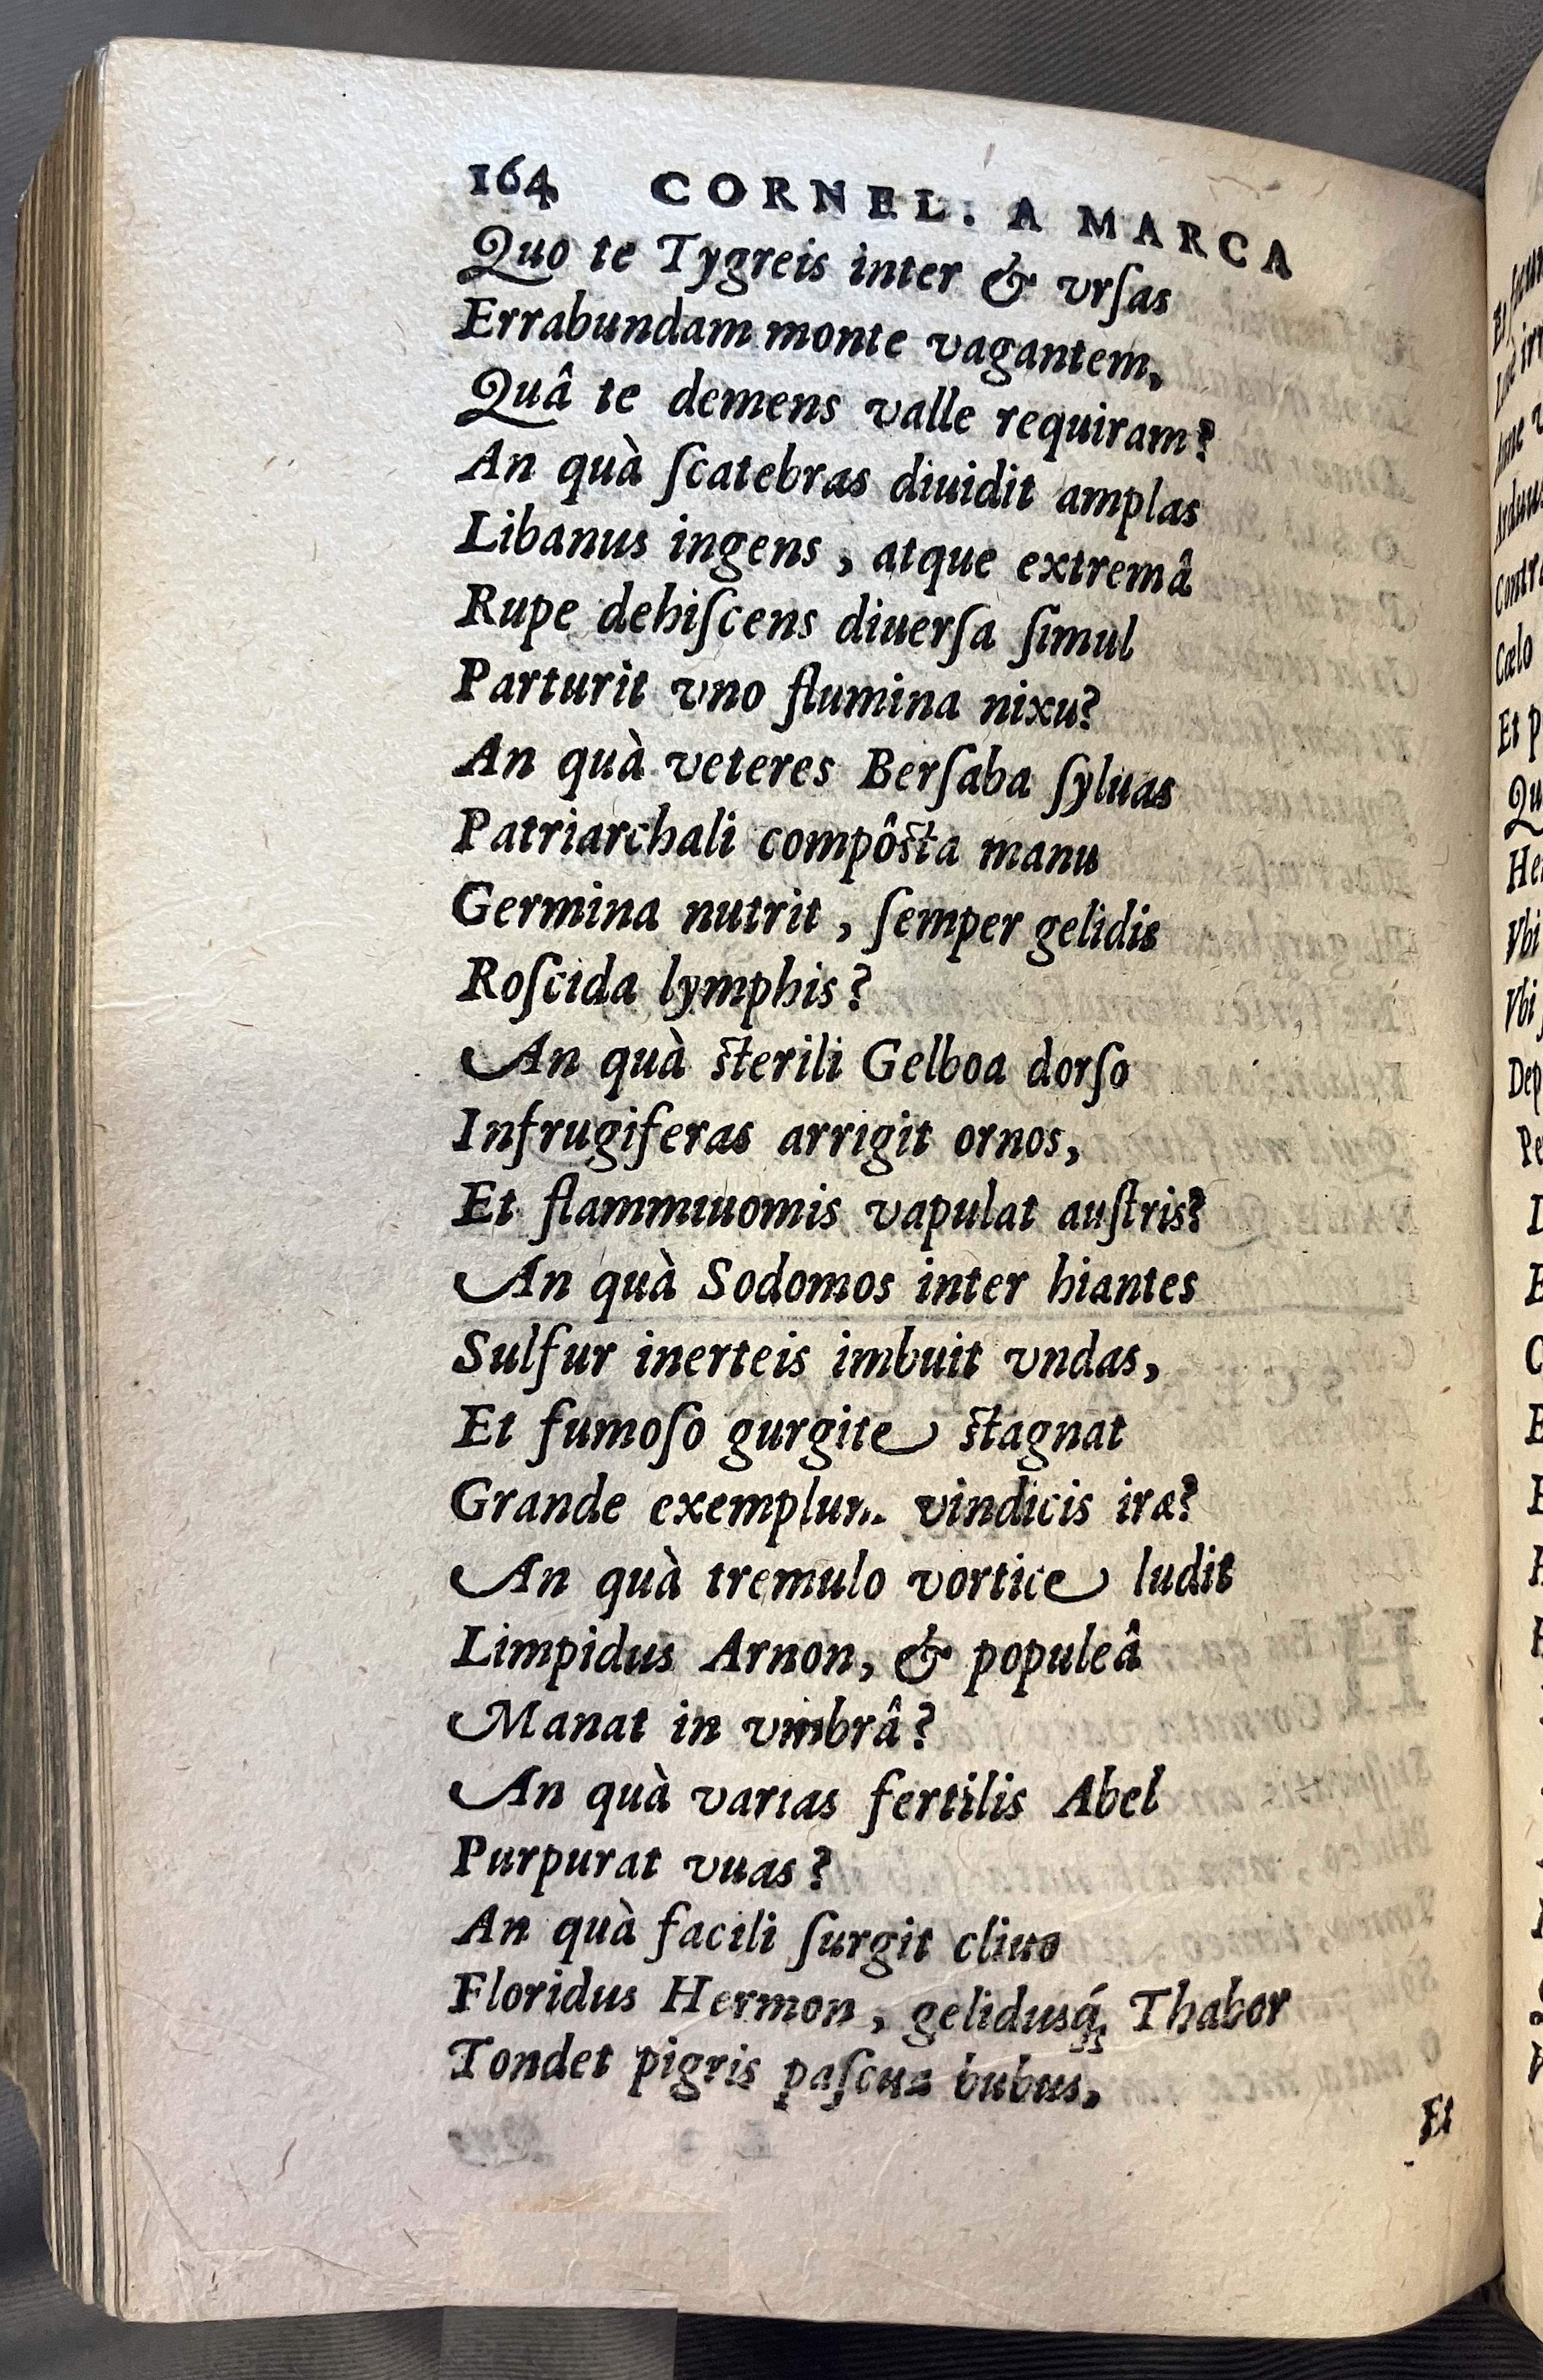 164 CORNEL. A MARCA
Quo te Tygreis inter & vrſas
Errabundam monte vagantem,
Quâ te demens valle requiram?
An quà ſcatebras diuidit amplas
Libanus ingens, atque extremâ
Rupe dehiſcens diuerſa ſimul
Parturit vno flumina nixu?
An quà veteres Berſaba ſyluas
Patriarchali compôſta manu
Germina nutrit, ſemper gelidis
Roſcida lymphis?
An quà ſterili Gelboa dorſo
Infrugiferas arrigit ornos,
Et flammiuomis vapulat auſtris?
An quà Sodomos inter hiantes
Sulfur inerteis imbuit vndas,
Et fumoſo gurgite ſtagnat
Grande exemplum vindicis iræ?
An quà tremulo vortice ludit
Limpidus Arnon, & populeâ
Manat in vmbrâ?
An quà varias fertilis Abel
Purpurat vuas?
An quà facili ſurgit cliuo
Floridus Hermon, gelidusq́; Thabor
Tondet pigris paſcua bubus,
Et